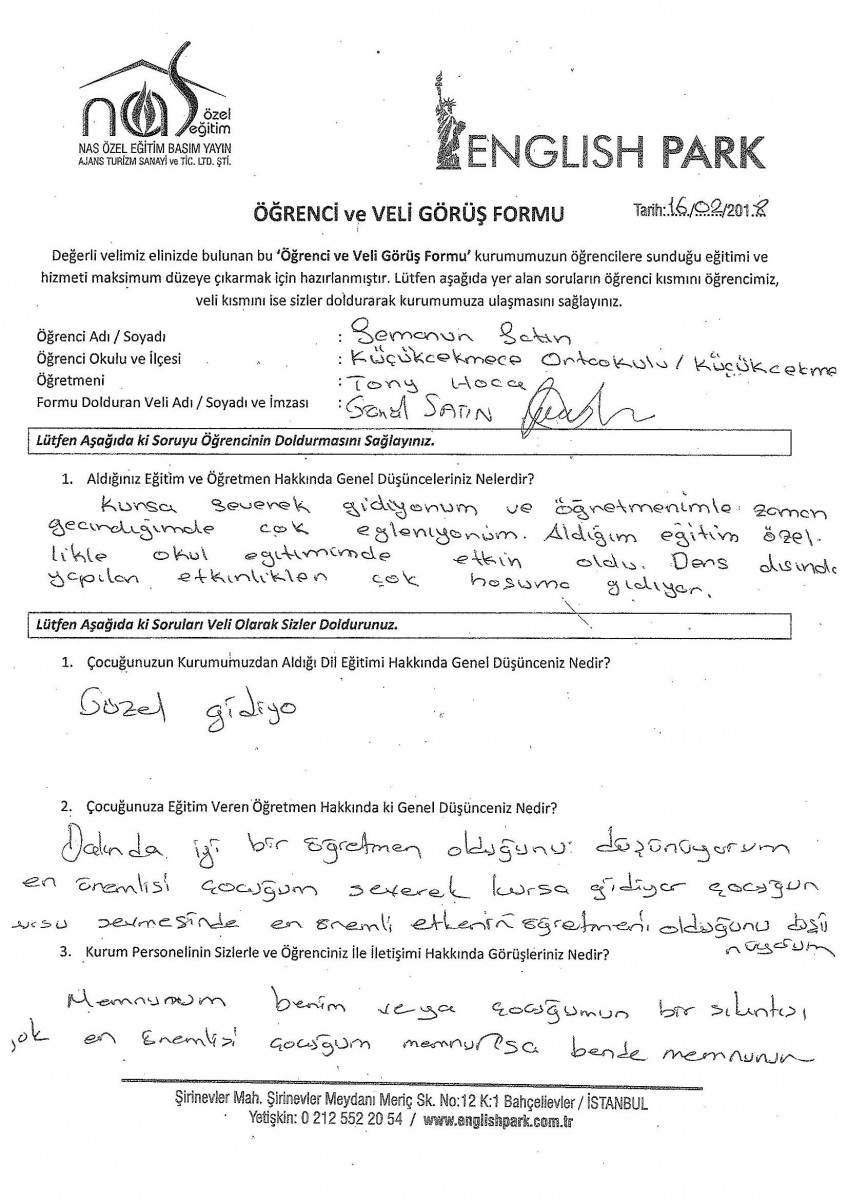 nas özel eğitim
NAS ÖZEL EĞİTİM BASIM YAYIN
AJANS TURİZM SANAYİ ve TİC. LTD. ŞTİ.
ENGLISH PARK
ÖĞRENCİ ve VELİ GÖRÜŞ FORMU
Tarih:16/02/2018
Değerli velimiz elinizde bulunan bu 'Öğrenci ve Veli Görüş Formu' kurumumuzun öğrencilere sunduğu eğitimi ve
hizmeti maksimum düzeye çıkarmak için hazırlanmıştır. Lütfen aşağıda yer alan soruların öğrenci kısmını öğrencimiz,
veli kısmını ise sizler doldurarak kurumumuza ulaşmasını sağlayınız.
Öğrenci Adı / Soyadı : Semanur Satın
Öğrenci Okulu ve İlçesi : Küçükcekmece Ortaokulu / Küçükcekme
Öğretmeni : Tony Hoca
Formu Dolduran Veli Adı / Soyadı ve İmzası : SATIN
Lütfen Aşağıda ki Soruyu Öğrencinin Doldurmasını Sağlayınız.
1. Aldığınız Eğitim ve Öğretmen Hakkında Genel Düşünceleriniz Nelerdir?
Kursa severek gidiyorum ve öğretmenimle zaman
gecirdiğimde çok egleniyorum. Aldığım eğitim özel-
likle okul egitimimde etkin oldu. Ders dısında
yapılan etkinlikler çok hosuma gidiyor.
Lütfen Aşağıda ki Soruları Veli Olarak Sizler Doldurunuz.
1. Çocuğunuzun Kurumumuzdan Aldığı Dil Eğitimi Hakkında Genel Düşünceniz Nedir?
Güzel gidiyo
2. Çocuğunuza Eğitim Veren Öğretmen Hakkında ki Genel Düşünceniz Nedir?
Dalında iyi bir öğretmen olduğunu düşünüyorum
en önemlisi çocuğum severek kursa gidiyor çocuğun
ursu sevmesinde en önemli etkenin öğretmeni olduğunu düşü
nüyorum
3. Kurum Personelinin Sizlerle ve Öğrenciniz İle İletişimi Hakkında Görüşleriniz Nedir?
Memnunum benim veya çocuğumun bir sıkıntısı
yok en önemlisi çocuğum memnunsa bende memnunum
Şirinevler Mah. Şirinevler Meydanı Meriç Sk. No:12 K:1 Bahçelievler / İSTANBUL
Yetişkin: 0 212 552 20 54 / www.englishpark.com.tr